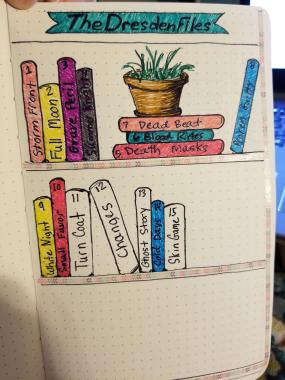 The Dresden Files
Storm Front 1
Full Moon 2
Grave Peril 3
Summer Knight 4
7 Dead Beat
6 Blood Rites
5 Death Masks
8
White Night 9
Small Favor 10
Turn Coat 11
Changes 12
Ghost Story 13
Cold Days
Skin Game 15